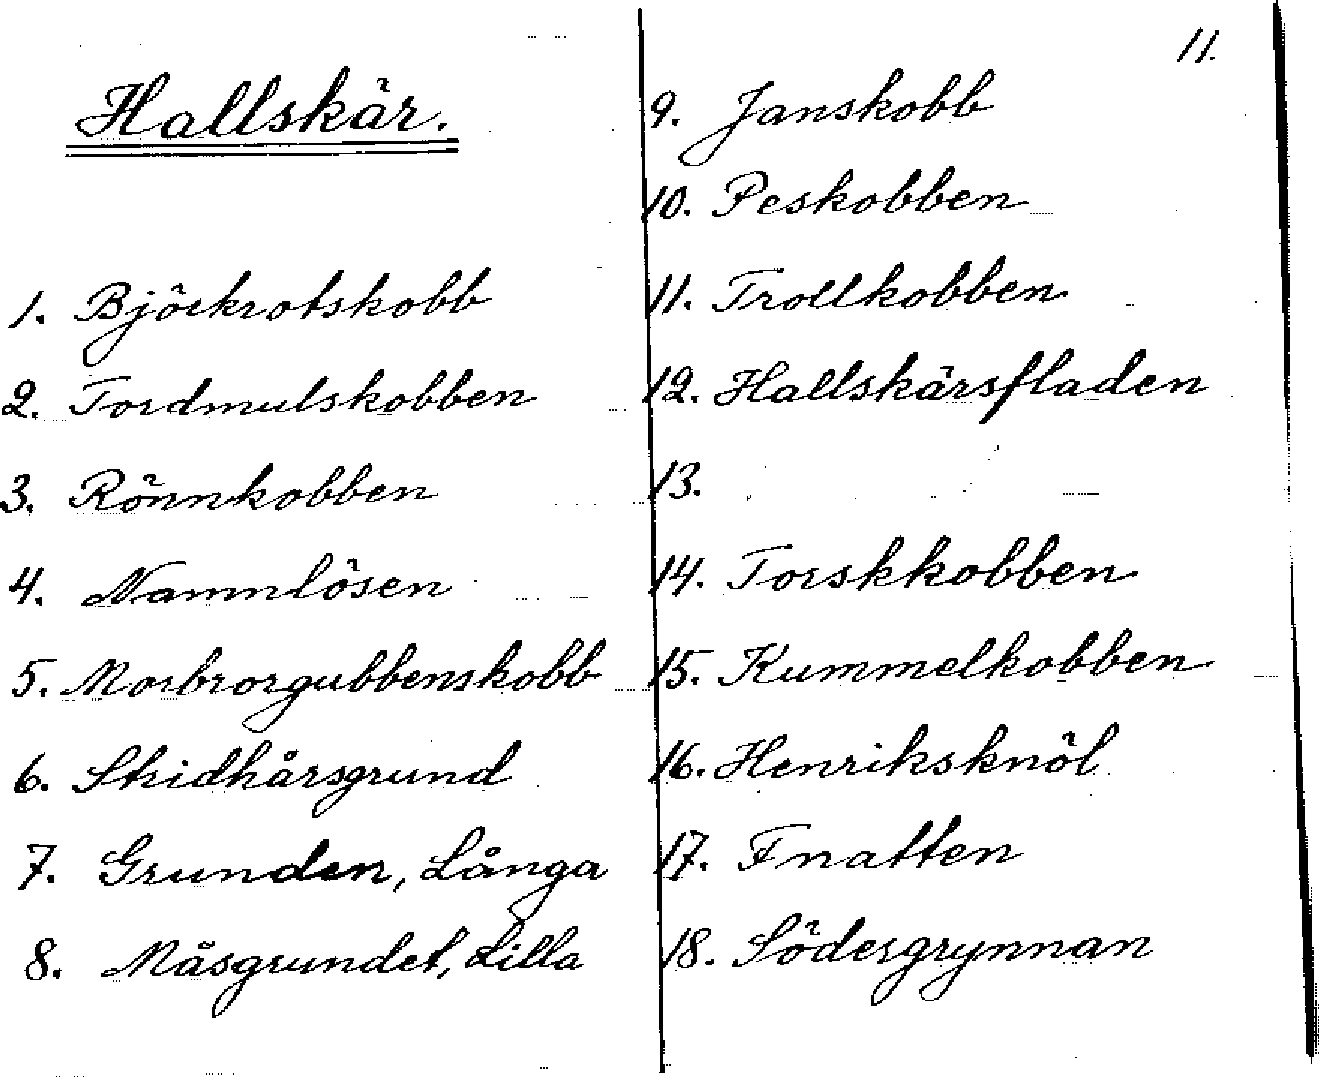 Hallskär.
1. Björkrotskobb
2. Tordmulskobben
3. Rönnkobben
4. Namnlösen
5. Morbrorgubbenskobb
6. Skidhårsgrund
7. Grunden, Långa
8. Måsgrundet, Lilla
11.
9. Janskobb
10. Peskobben
11. Trollkobben
12. Hallskärsfladen
13.
14. Torskkobben
15. Kummelkobben
16. Henriksknöl
17. Fnatten
18. Södergrynnan